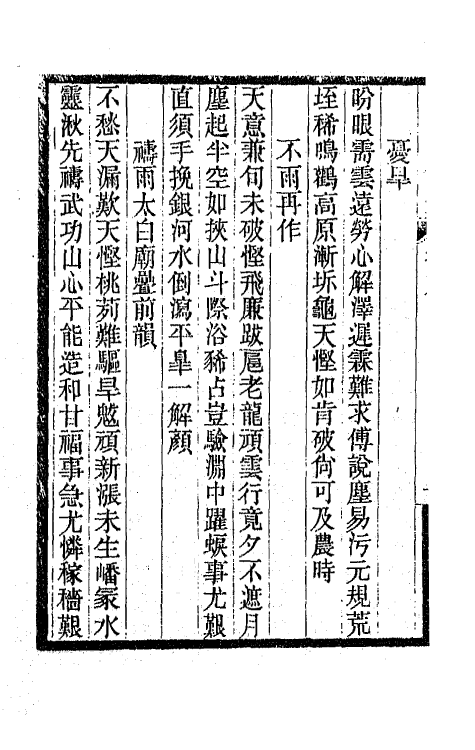 憂旱
盼眼需雲遠勞心解澤遲霖難求傅說塵易污元規荒
垤稀鳴鸛高原漸坼龜天慳如肯破尙可及農時
不雨再作
天意兼旬未破慳飛廉跋扈老龍頑雲行竟夕不遮月
塵起半空如挾山斗際浴豨占豈驗淵中躍蝘事尤艱
直須手挽銀河水倒瀉平臯一解顏
禱雨太白廟疊前韻
不愁天漏歎天慳桃茢難驅旱魃頑新漲未生嶓冢水
靈湫先禱武功山心平能造和甘福事急尤憐稼穡艱